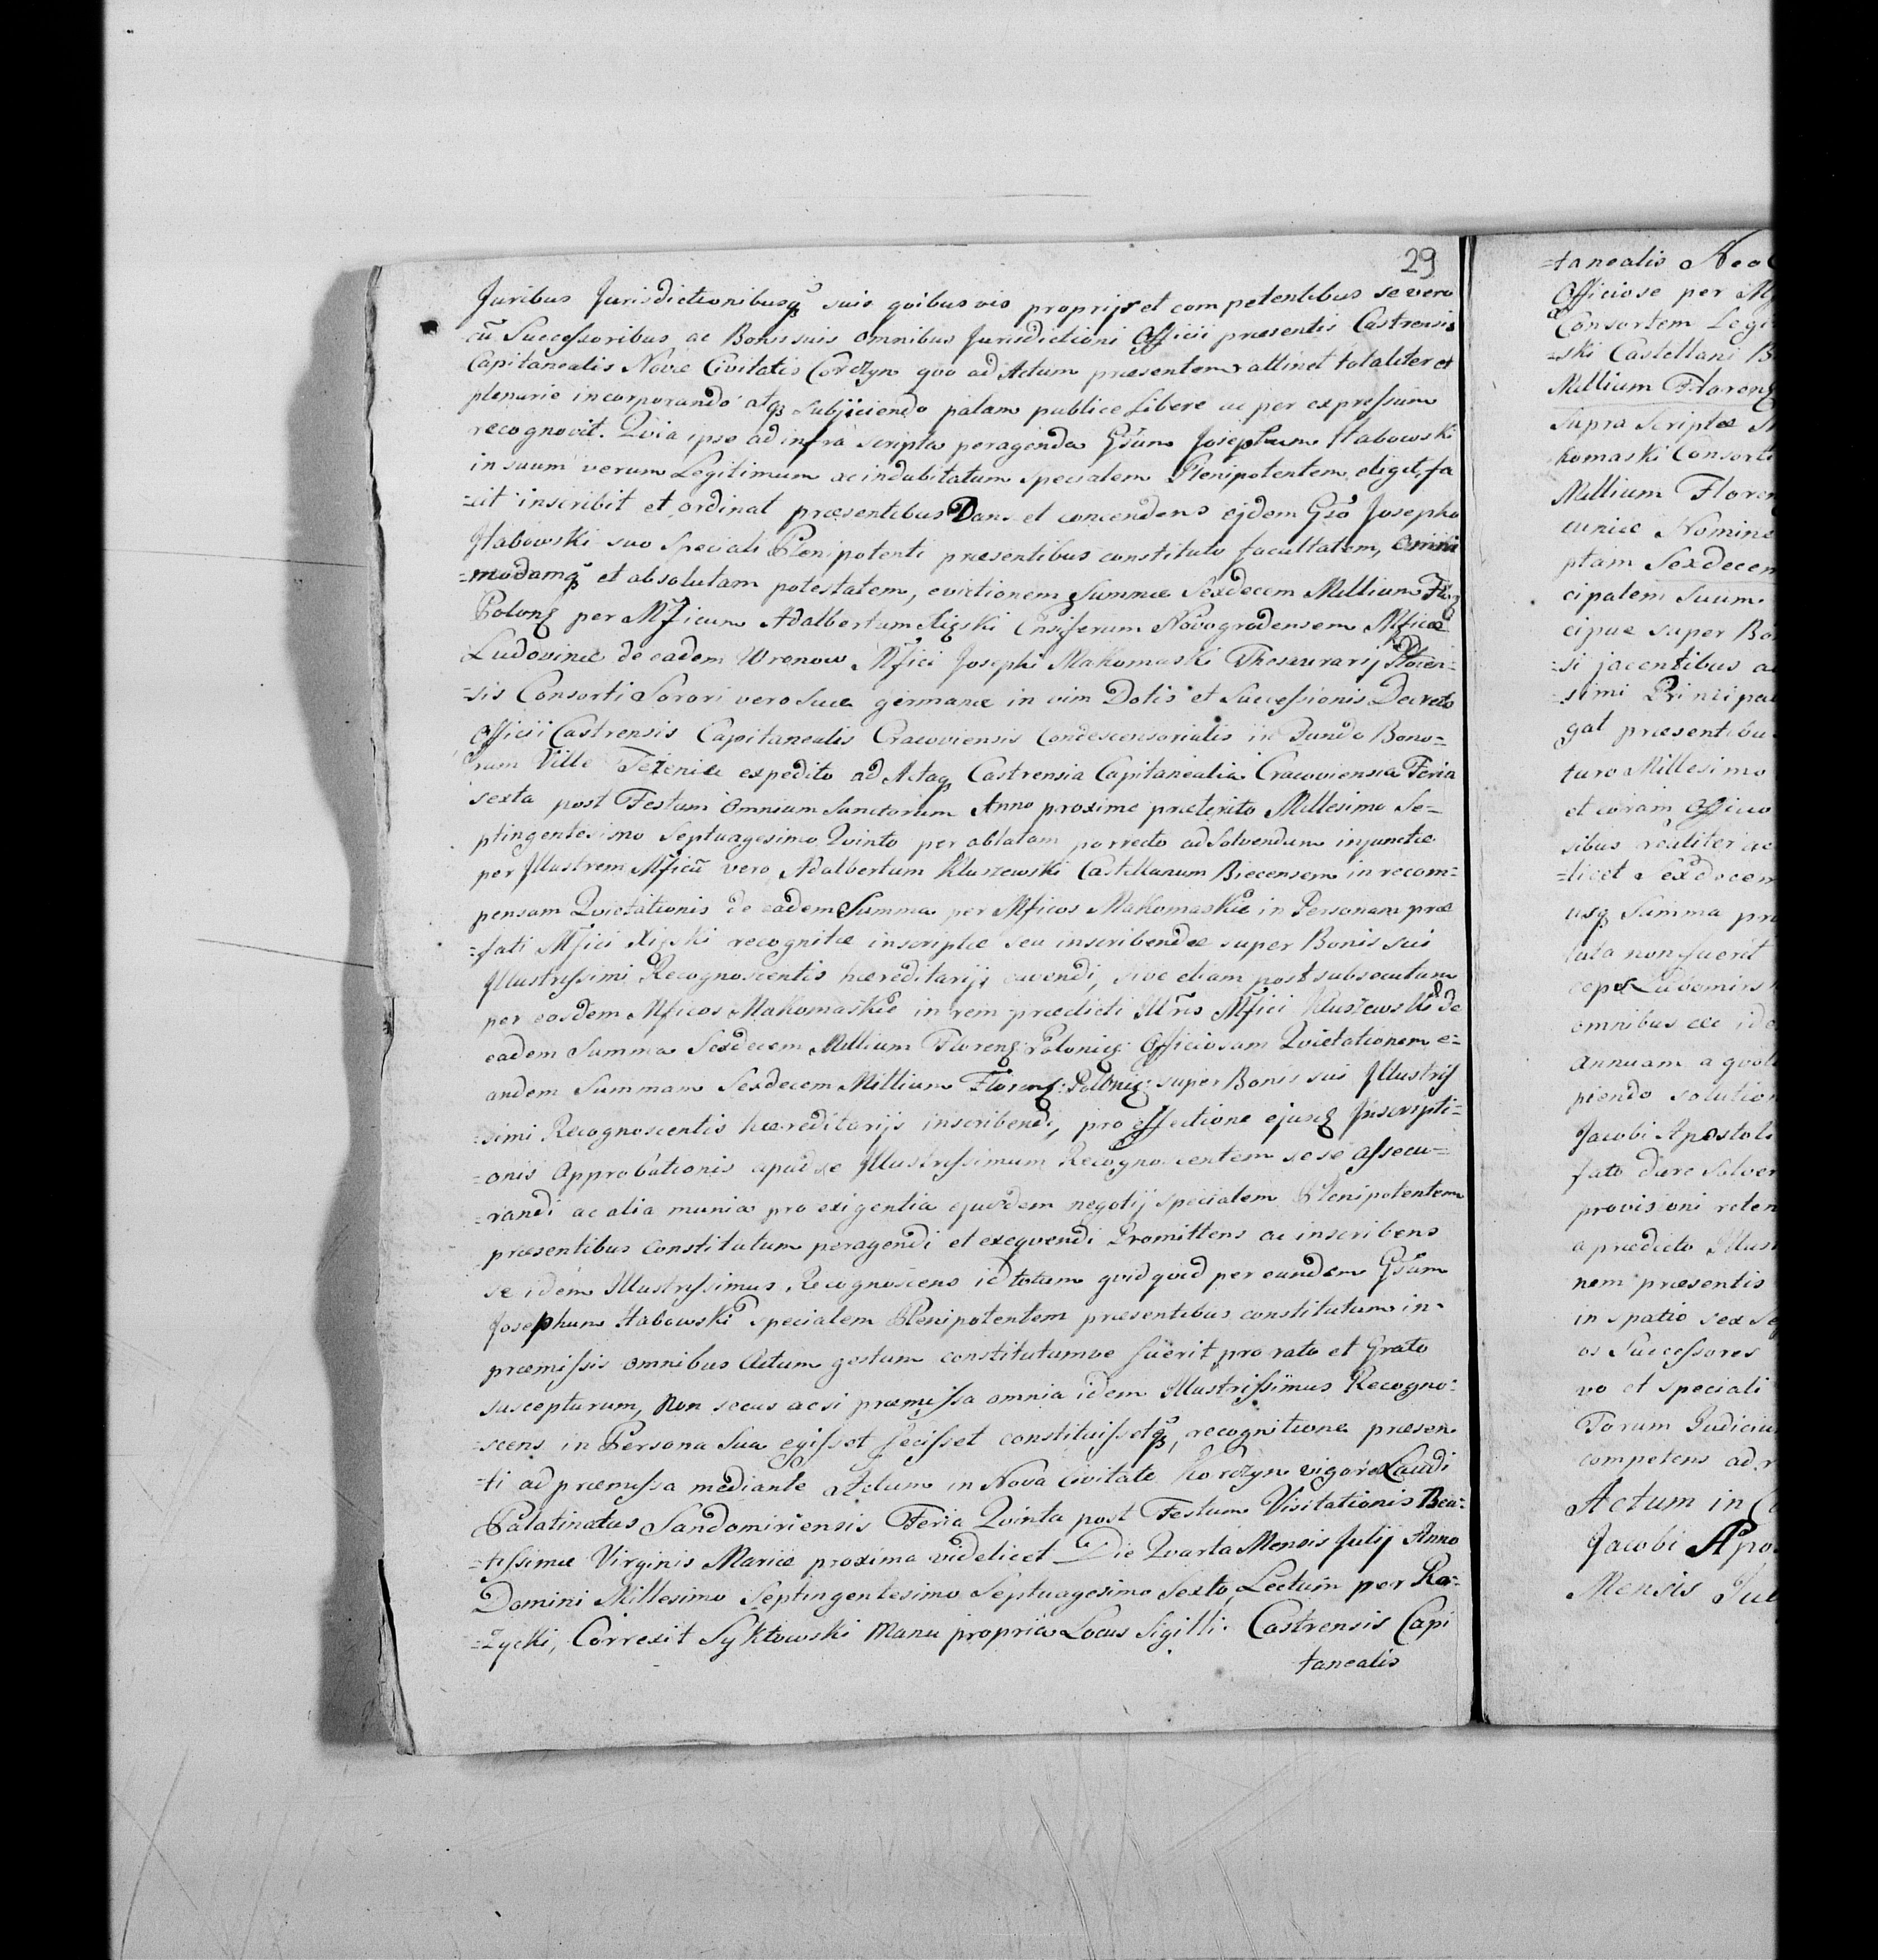 29
Juribus Jurisdictionibusq̃ suis quibusvis proprijs et competentibus se vero
cũ Successoribus ac Bonis suis omnibus Jurisdictioni Officii præsentis Castrensis
Capitanealis Novæ Civitatis Corczyn quo ad Actum præsentem attinet totaliter et
plenarie incorporando atq̃ subjiciendo palam publice Libere ac per expressum
recognovit. Quia ipse ad infra scripta peragenda Gsũm Josephum Habowski
in suum verum Legitimum ac indubitatum specialem Plenipotentem eligit, fa
=cit inscribit et ordinat præsentibus Dans et concendens ejdem Gsõ Josepho
Habowski suo speciali Plenipotenti præsentibus constituto facultatem, omni
=modamq̃ et absolutam potestatem, evictionem Summæ Sexdecem Millium Flor
Polonq per Mficum Adalbertum Ensiferum Novogrodensem Mficæ
Ludovinæ de eadem Wronow Mfici Josephi Makomaski Thesaurarij Plocen=
=sis Consorti Sorori vero suæ germanæ in vim Dotis et Successionis Decreto
Officii Castrensis Capitanealis Cracoviensis Condescensorialis in Fundo Bono=
rum Villæ expedito ad Actaq̃ Castrensia Capitanealia Cracoviensia Feria
sexta post Festum Omnium Sanctorum Anno proxime præterito Millesimo Se=
ptingentesimo Septuagesimo Quinto per oblatam porrecto ad Solvendum injunctæ
per Jllustrem Mficũ vero Adalbertum Kluszewski Castellanum Biecensem in recom=
pensam Quietationis de eadem Summa per Mficos Makomaskie in Personam præ
=fati Mfici recognitæ inscriptæ seu inscribendæ super Bonis sui
Jllustrissimi Recognoscentis hæreditarijs cavendi, sive etiam post subsecutam
per eosdem Mficos Makomaskie in rem prædicti Jllr̃is Mfici Kluszewski de
eadem Summa Sexdecem Millium Florenq: Poloniq: Officiosam Quietationem e=
andem Summam Sexdecem Millium Florenq: Poloniq: super Bonis sui Jllustris
=simi Recognoscentis hæreditarijs inscribendi, pro effectione ejusq̃ Jnscripti=
=onis Approbationis apud se Jllustrissimum Recognoscentem sese assecu=
=randi ac alia munia pro exigentia ejusdem negotij specialem Plenipotentem
præsentibus constitutum peragendi et exequendi Promittens ac inscribens
se idem Jllustrissimus Recognoscens id totum quidquid per eundem Gsũm
Josephum Habowski specialem Plenipotentem præsentibus constitutum in=
præmissis omnibus Actum gestum constitutumve fuerit pro rato et Grato
suscepturum, non secus acsi præmissa omnia idem Jllustrissimus Recogno=
=scens in Persona Sua egisset fecisset constituissetq̃, recognitione præsen
=ti ad præmissa mediante Actum in Nova Civitate Korczyn vigore Laudi
Palatinatus Sandomiriensis Feria Quinta post Festum Visitationis Bea=
=tissimæ Virginis Mariæ proxima videlicet Die Quarta Mensis Julij Anno
Domini Millesimo Septingentesimo Septuagesimo Sexto, Lectum per Ra=
=zycki, Correxit Syktowski manu propria Locus Sigilli. Castrensis Capi
tanealis
=tanealis Neo
Officiose per M
Consortem Legi
=ski Castellani B
Millium Florenq
Supra Scriptæ
komaski Consorti
Millium Floren
Nomine
ptam Sexdecem
cipalem suum
cipue super Bo
=si jacentibus a
=simi Principa
gat præsentibu
turo Millesimo
et coram Officio
sibus realiter ac
=licet Sexdecem
usq̃ Summa pr
lata non fuerit
omnibus
Annuam a quol
piendo solution
Jacobi Apostoli
fato dare Solver
provisioni reten
a prædicto Jllus
nem præsentis
in spatio sex Se
os Successores
vo et speciali
Forum Judiciu
competens ad
Actum in C
Jacobi Apo
Mensis Jul